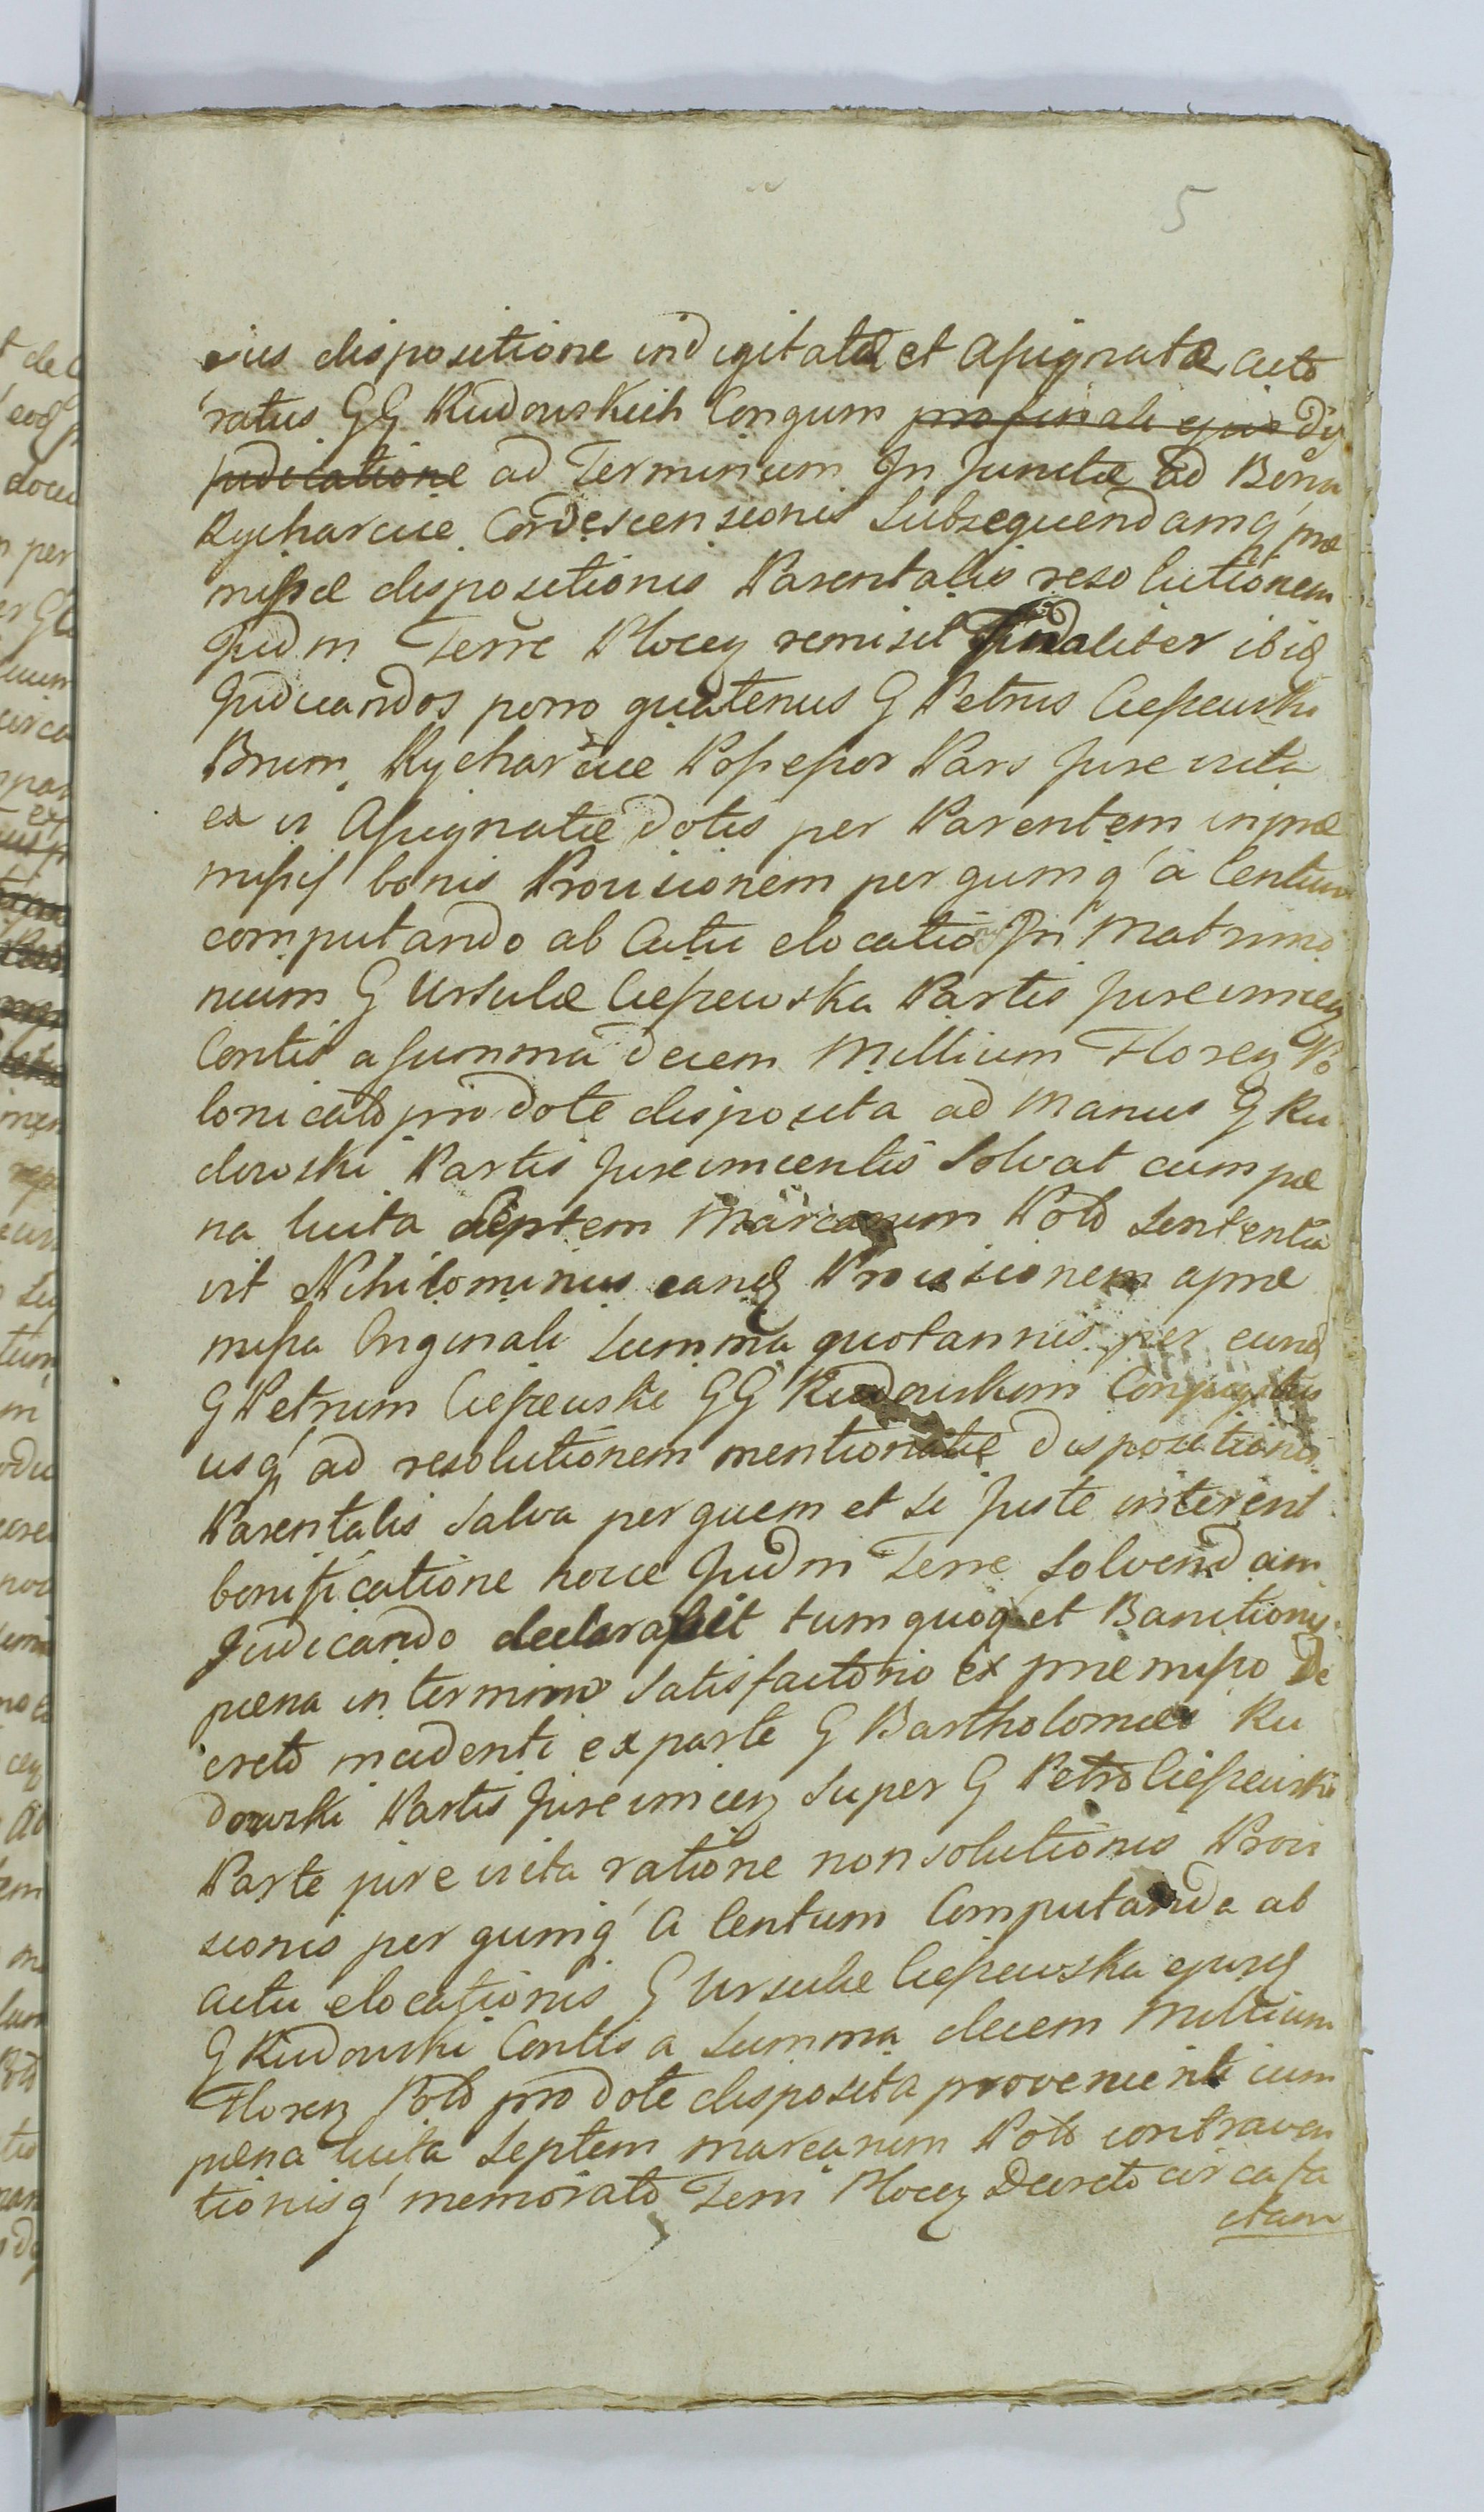 5
eius dispositione indigitatæ et Assignatæ, acto
ratus GG Rudowskich Congum pro finali ejus dij
judicatione ad Terminum In Junctæ ad Bona
Rycharcice Condescensionis Subsequendamq' præ
missæ dispositionis Parentalis resolutionem
Judm Terre Plocen remisit finaliter ibid
Judicandos porro quatenus G Petrus Ciepewski
Brum Rycharcice Possessor Pars Jure victa
ex vi Assignatæ Dotis per Parentem in præ
missis bonis Provisionem per quinq' a Centum
computando ab Actu elocatio In Matrimo
nium G Ursulæ Ciepewska Partis Jurevincen
Contis a summa decem Millium Floren Po
lonicalo pro dote disposita ad Manus G Ru
dowski Partis Jurevincentis Solvat cum pæ
na luita Septem Marcarum Pold Sententia
vit Nihilominus eand Provisionem a præ
missa Originali Summa quotannis per eund
G Petrum Ciepewski GG Rudowskim Conjugibus
usq' ad resolutionem mentionatæ dispositionis
Parentalis Salva per quem et si Juste interent
bonificatione hocce Judm Terre Solvendam
Judicando declarassit tum quoq et Banitionis
pæna in termino Satisfactorio ex præmisso De
creto incidenti ex parte G Bartholomæi Ru
dowski Partis Jurevincen Super G Petro Ciepewski
Parte jure victa ratione non solutionis Provi
sionis per quinq' a Centum Computanda ab
actu elocationis G Ursulæ Ciepewska ejusd
G Rudowski Contis a Summa decem Millium
Floren Pold pro dote disposita provenienti cum
pæna luita Septem marcarum Pold contraven
tionisq' memorato Terri Plocen Decreto circa fa
ctam